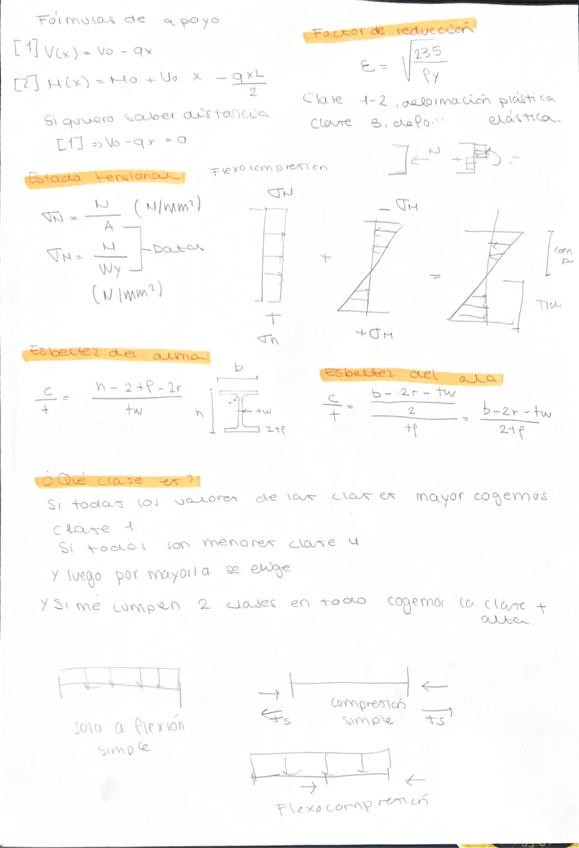 Fórmulas de apoyo
[1] V(x) = Vo - qx
[2] M(x) = Mo + Vo x - qx2/2
Si quiero saber distancia
[1] => Vo - qx = 0
Factor de reducción
ε = √235/fy
Clase 1-2, deformación plástica
Clase 3, defo.. '' elástica.
← N +
=
Estado tensional
Flexocompresion
σN = N/A (N/mm²)
σM = M/Wy
Datos
(N/mm²)
σN
+
σn
+
- σM
+σM
=
Esbeltez del alma
c/t = h - 2tf - 2r / tw
b
h
tw
2tf
Esbeltez del ala
c/t = b - 2r - tw / 2 / tf = b - 2r - tw / 2tf
¿Qué clase es?
Si todas los valores de las clases mayor cogemos
clase 1
Si todos son menores clase 4
Y luego por mayoria se elige
Y si me cumpen 2 clases en todo cogemos la clase + alta.
solo a flexión
simple
compresión
simple
ts
ts
Flexocompresión